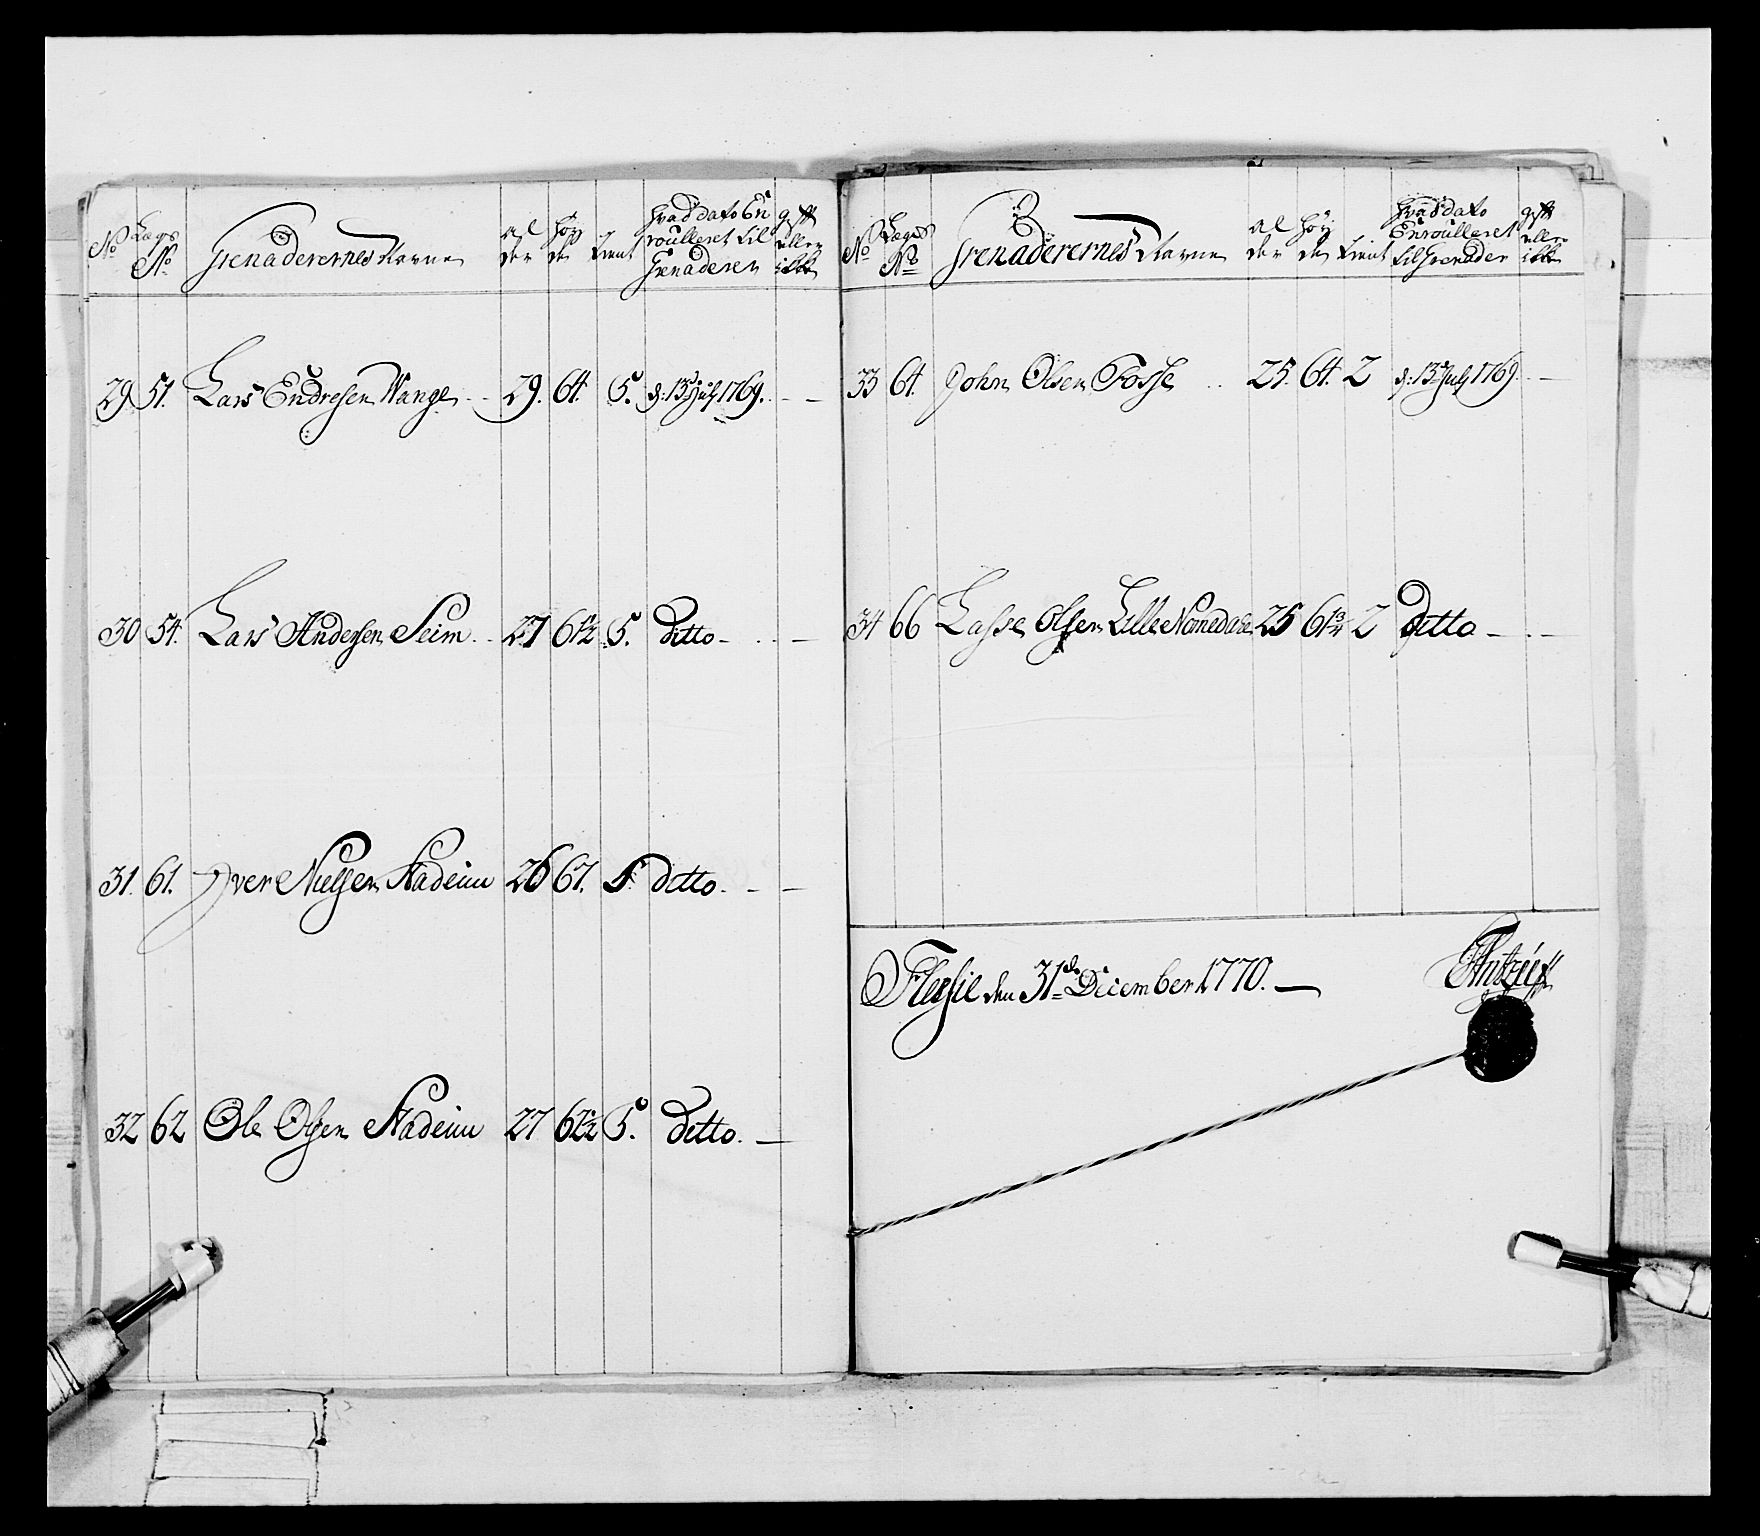 No Lægs No Grenaderernes Navne al der Høy de Tient Hvad dato En roulleret til Grenaderer gift eller ikke
29 51. Lars Endresen Wange 29. 64. 5. d: 13de July 1769.
30 54. Lars Andersen Seim 27 61½ 5. Ditto
31. 61. Iver Nielsen Stadeim 26 67. 5. ditto.
32 62 Ole Olsen Stadeim 27 62½ 5. Ditto.
No Lægs No Grenaderernes Navne al der Høy de Tient Hvad dato Enroulleret til Grenader gift eller ikke
33 64. John Olsen Fosse 25. 64. 2 d: 13de July 1769.
34 66 Lasse Olsen Lille 25 61¾ 2 Ditto
den 31de December 1770.